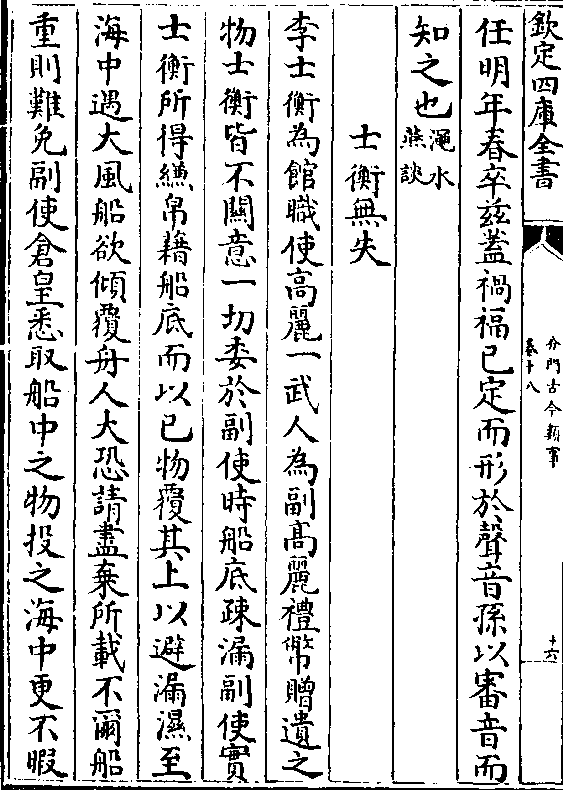 欽定四庫全書
分門古今類事
卷十八
十六
任明年春卒兹蓋禍福已定而形於聲音孫以審音而
知之也澠水燕談
士衡無失
李士衡為館職使高麗一武人為副高麗禮幣贈遺之
物士衡皆不關意一切委於副使時船底疎漏副使實
士衡所得縑帛藉船底而以已物覆其上以避漏濕至
海中遇大風船欲傾覆舟人大恐請盡棄所載不爾船
重則難免副使倉皇悉取船中之物投之海中更不暇